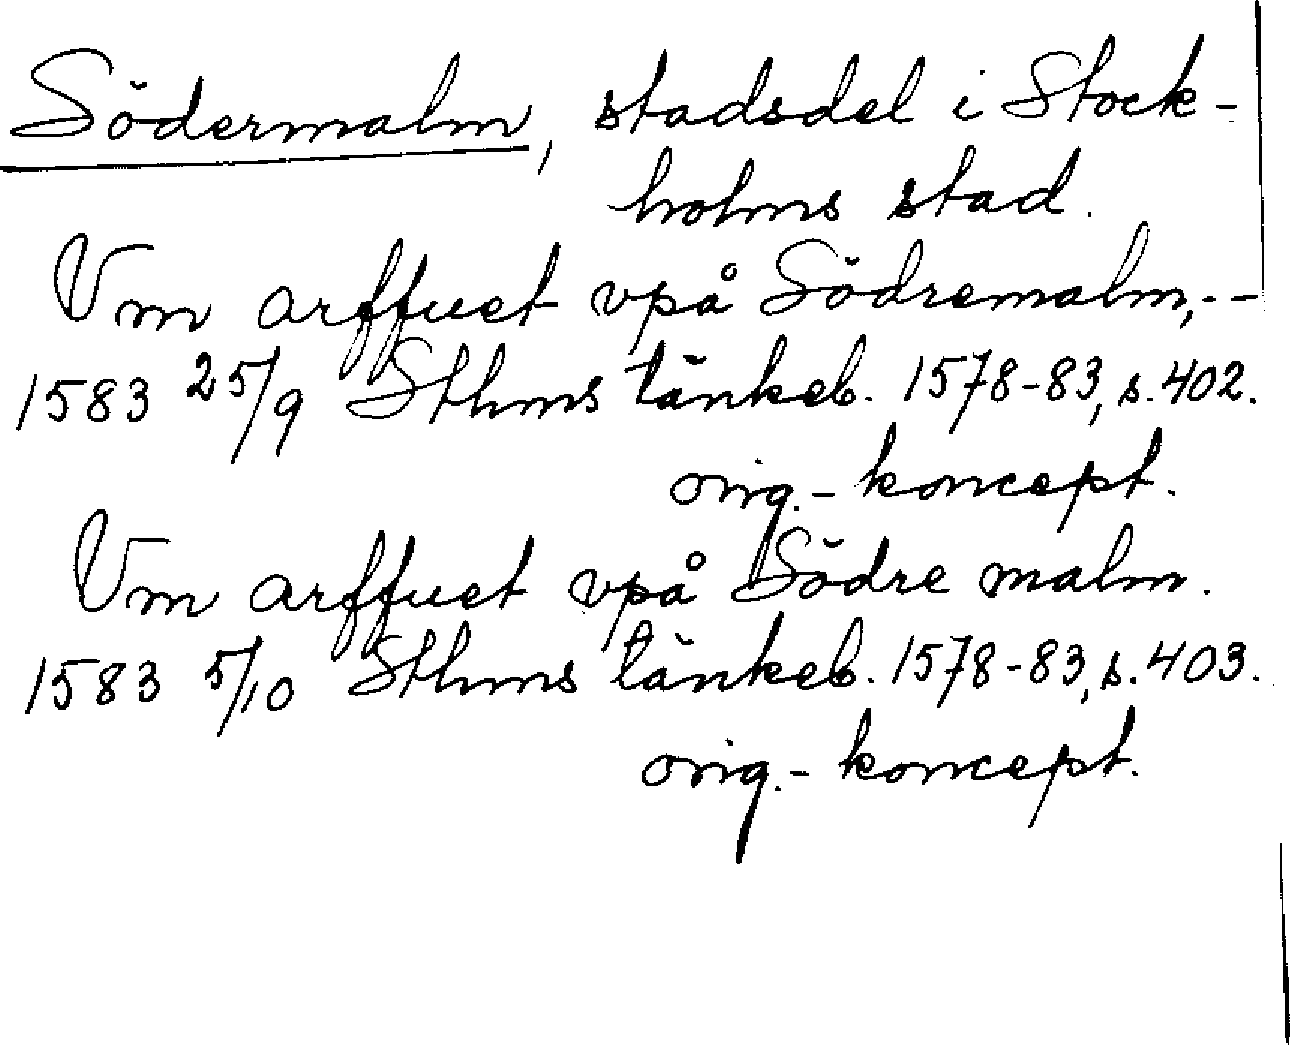 Södermalm, stadsdel i Stock-
holms stad.
Vm arffuet vpå Södremalm,--
1583 25/9 Sthms tänkeb. 1578-83, s. 402.
orig.-koncept.
Vm arffuet vpå Södre malm.
1583 5/10 Sthms tänkeb. 1578-83, s. 403.
orig.-koncept.